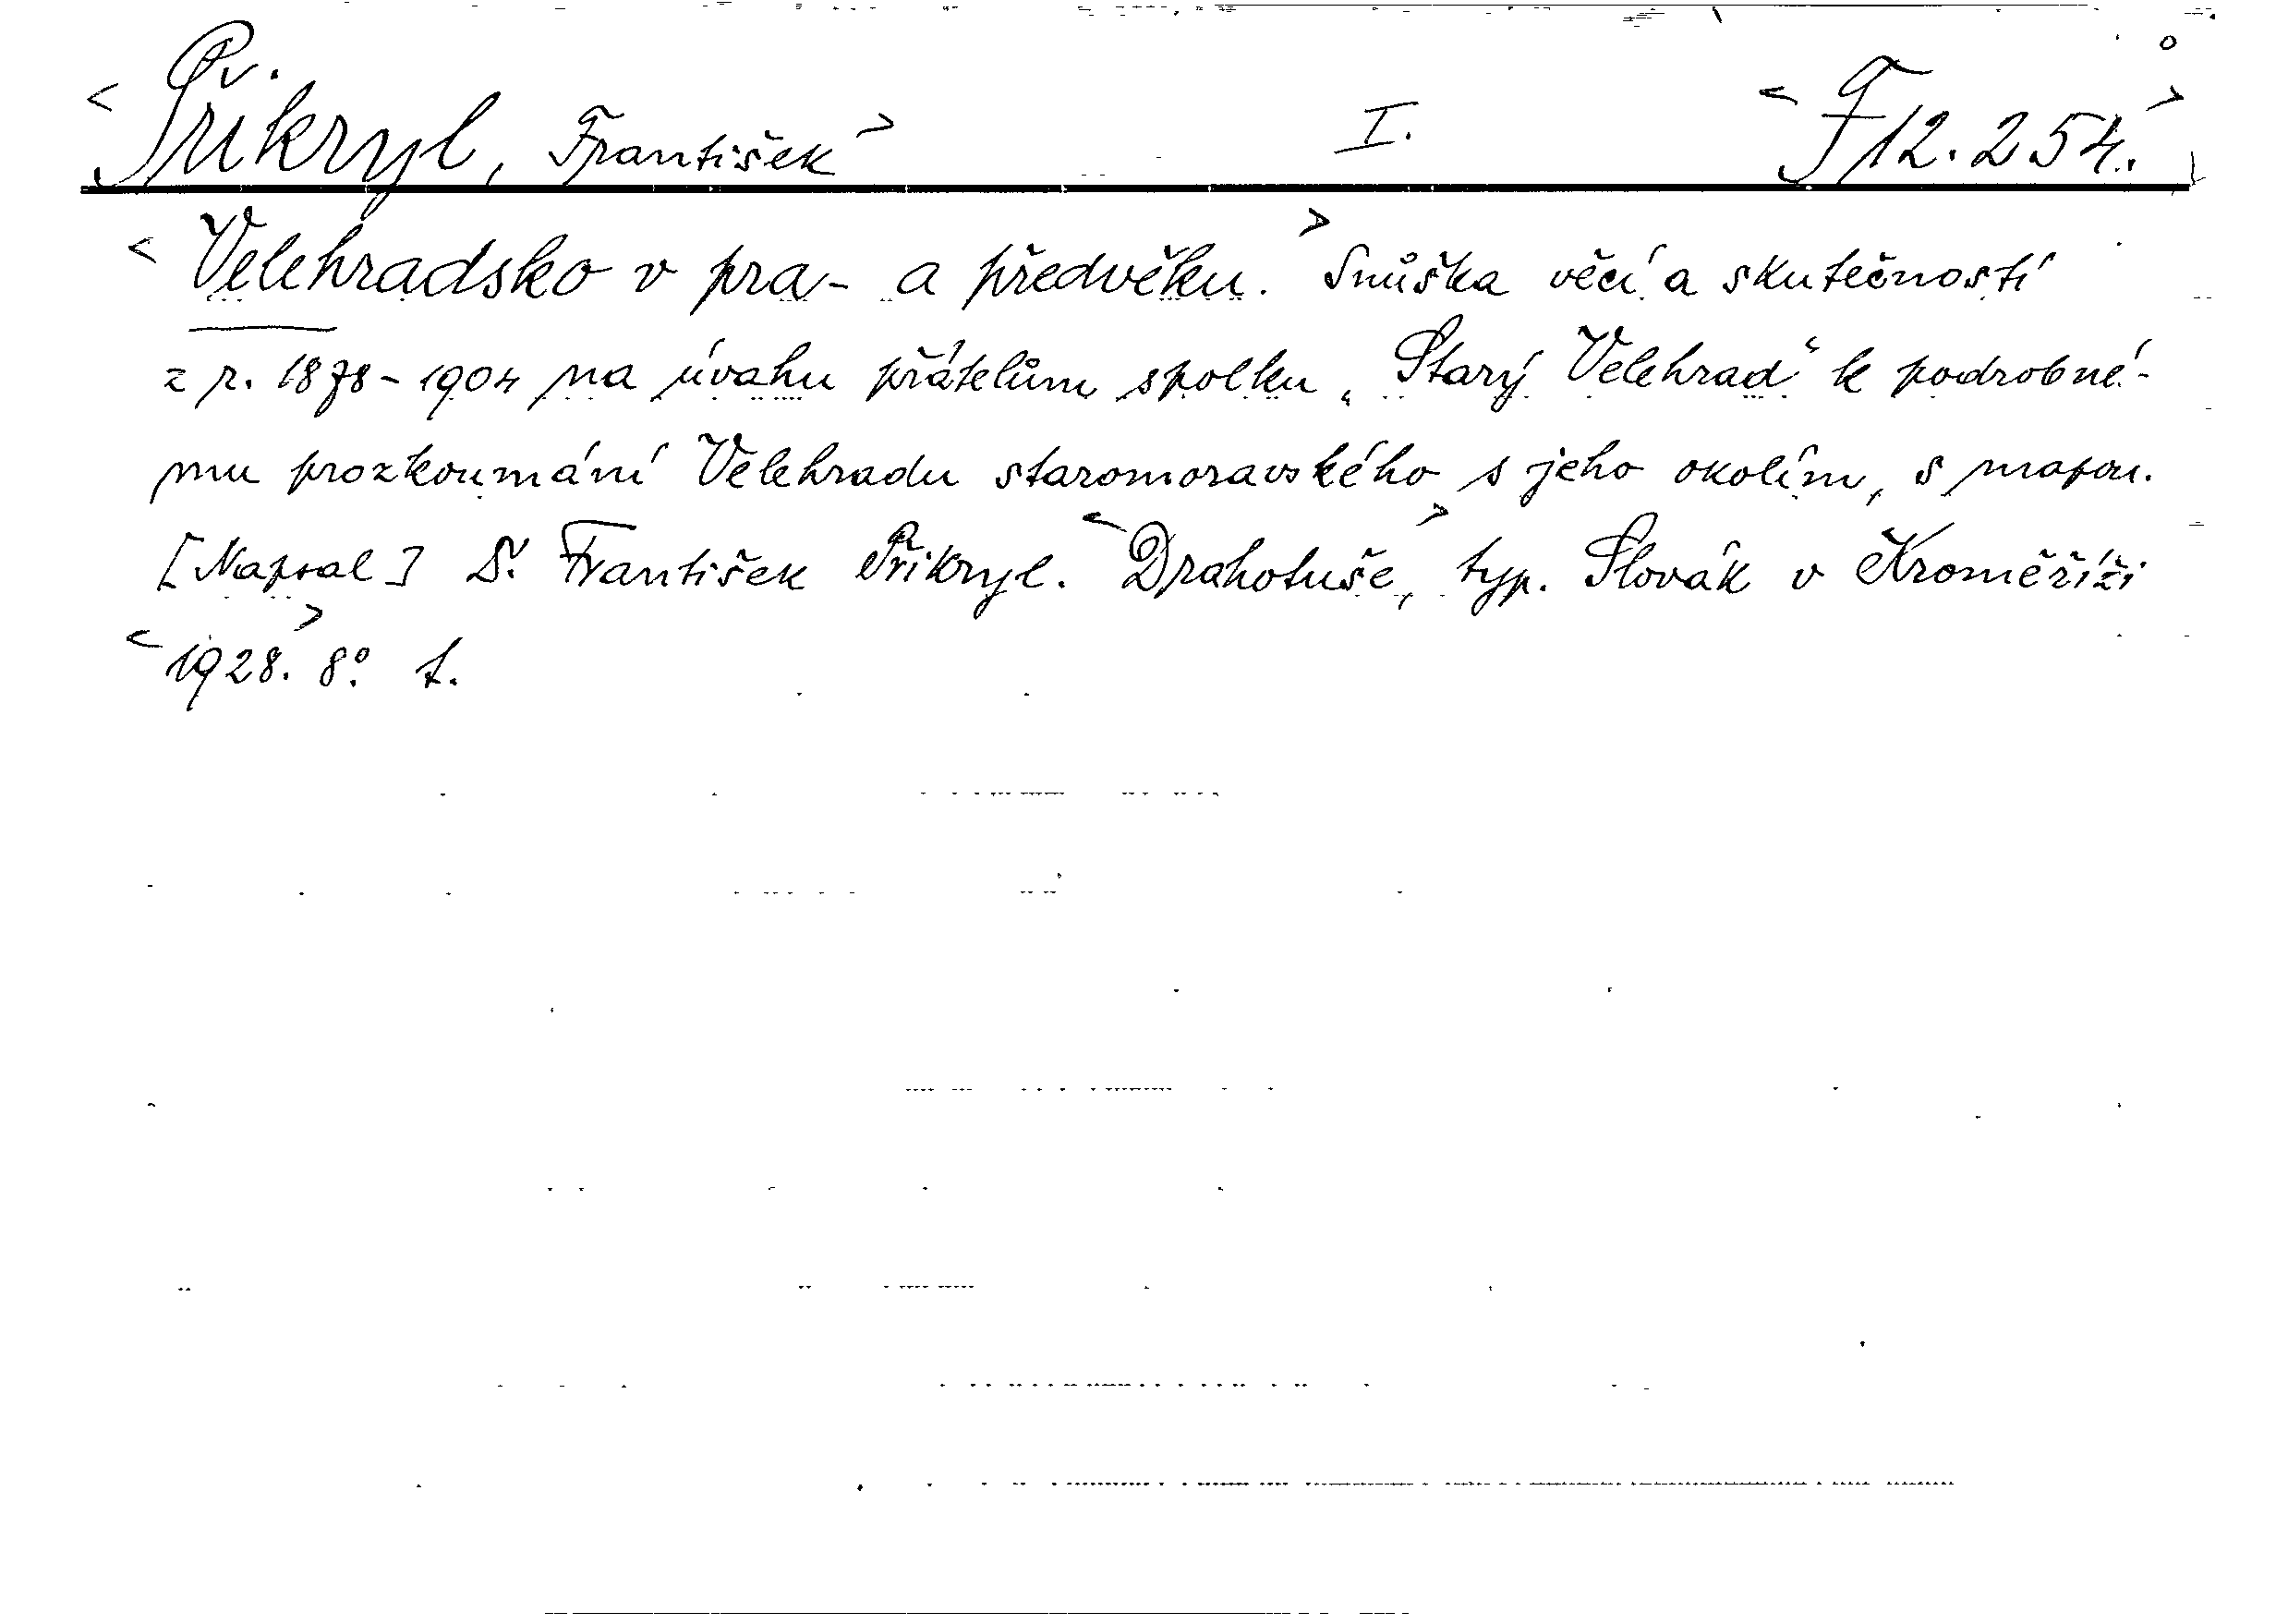 <Přikryl, František> I. <F 12.254.>
<Velehradsko v pra- a předvěku.> Snůška věcí a skutečností
z r. 1878-1904 na úvahu přátelům spolku „Starý Velehrad“ k podrobné-
mu prozkoumání Velehradu staromoravského s jeho okolím, s mapou.
[Napsal] Dr. František Přikryl. <Drahotuše,> typ. Slovák v Kroměříži
<1928.> 8°. t.